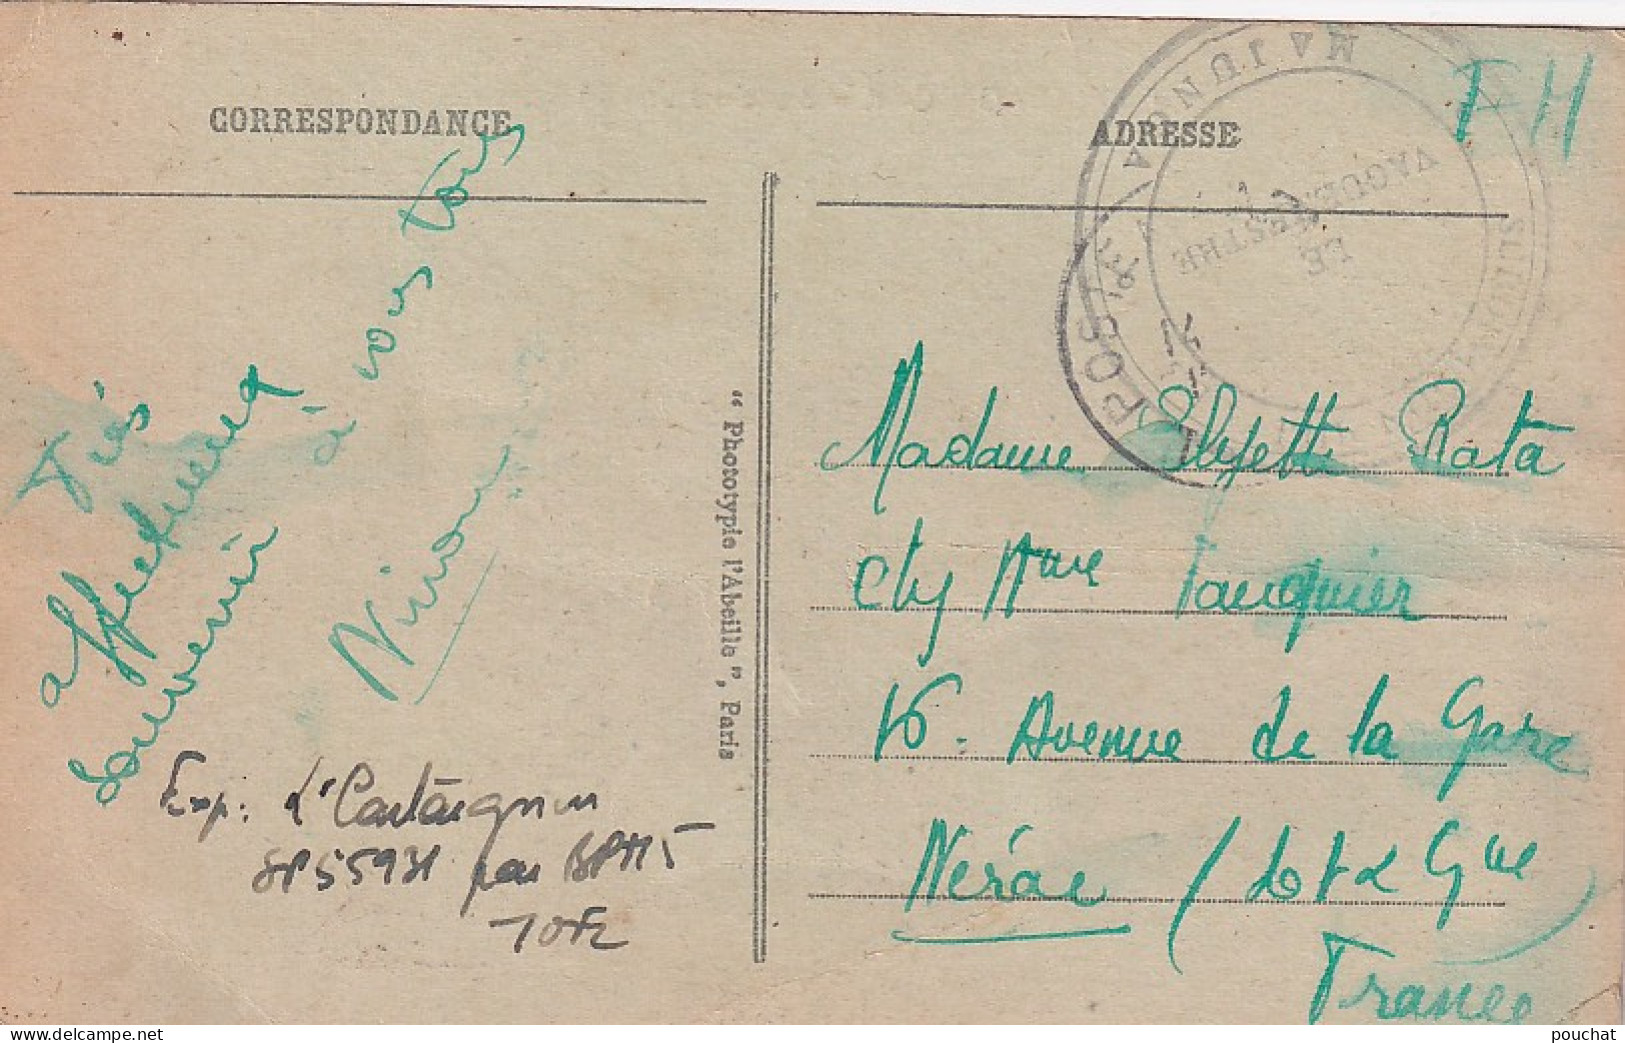 CORRESPONDANCE
Très
affectueux
souvenir
à vous tous
Ninon
Exp: Lt Castaignon
SP55931 par BPM5
TOE
" Photoypie l'Abeille ", Paris
ADRESSE
FM
MAJUNGA
LE
VAGUEMESTRE
POSTE
Madame Rata
chy Mme Fauquier
16. Avenue de la Gare
Nérac (Lot & Gne
France
pouchat